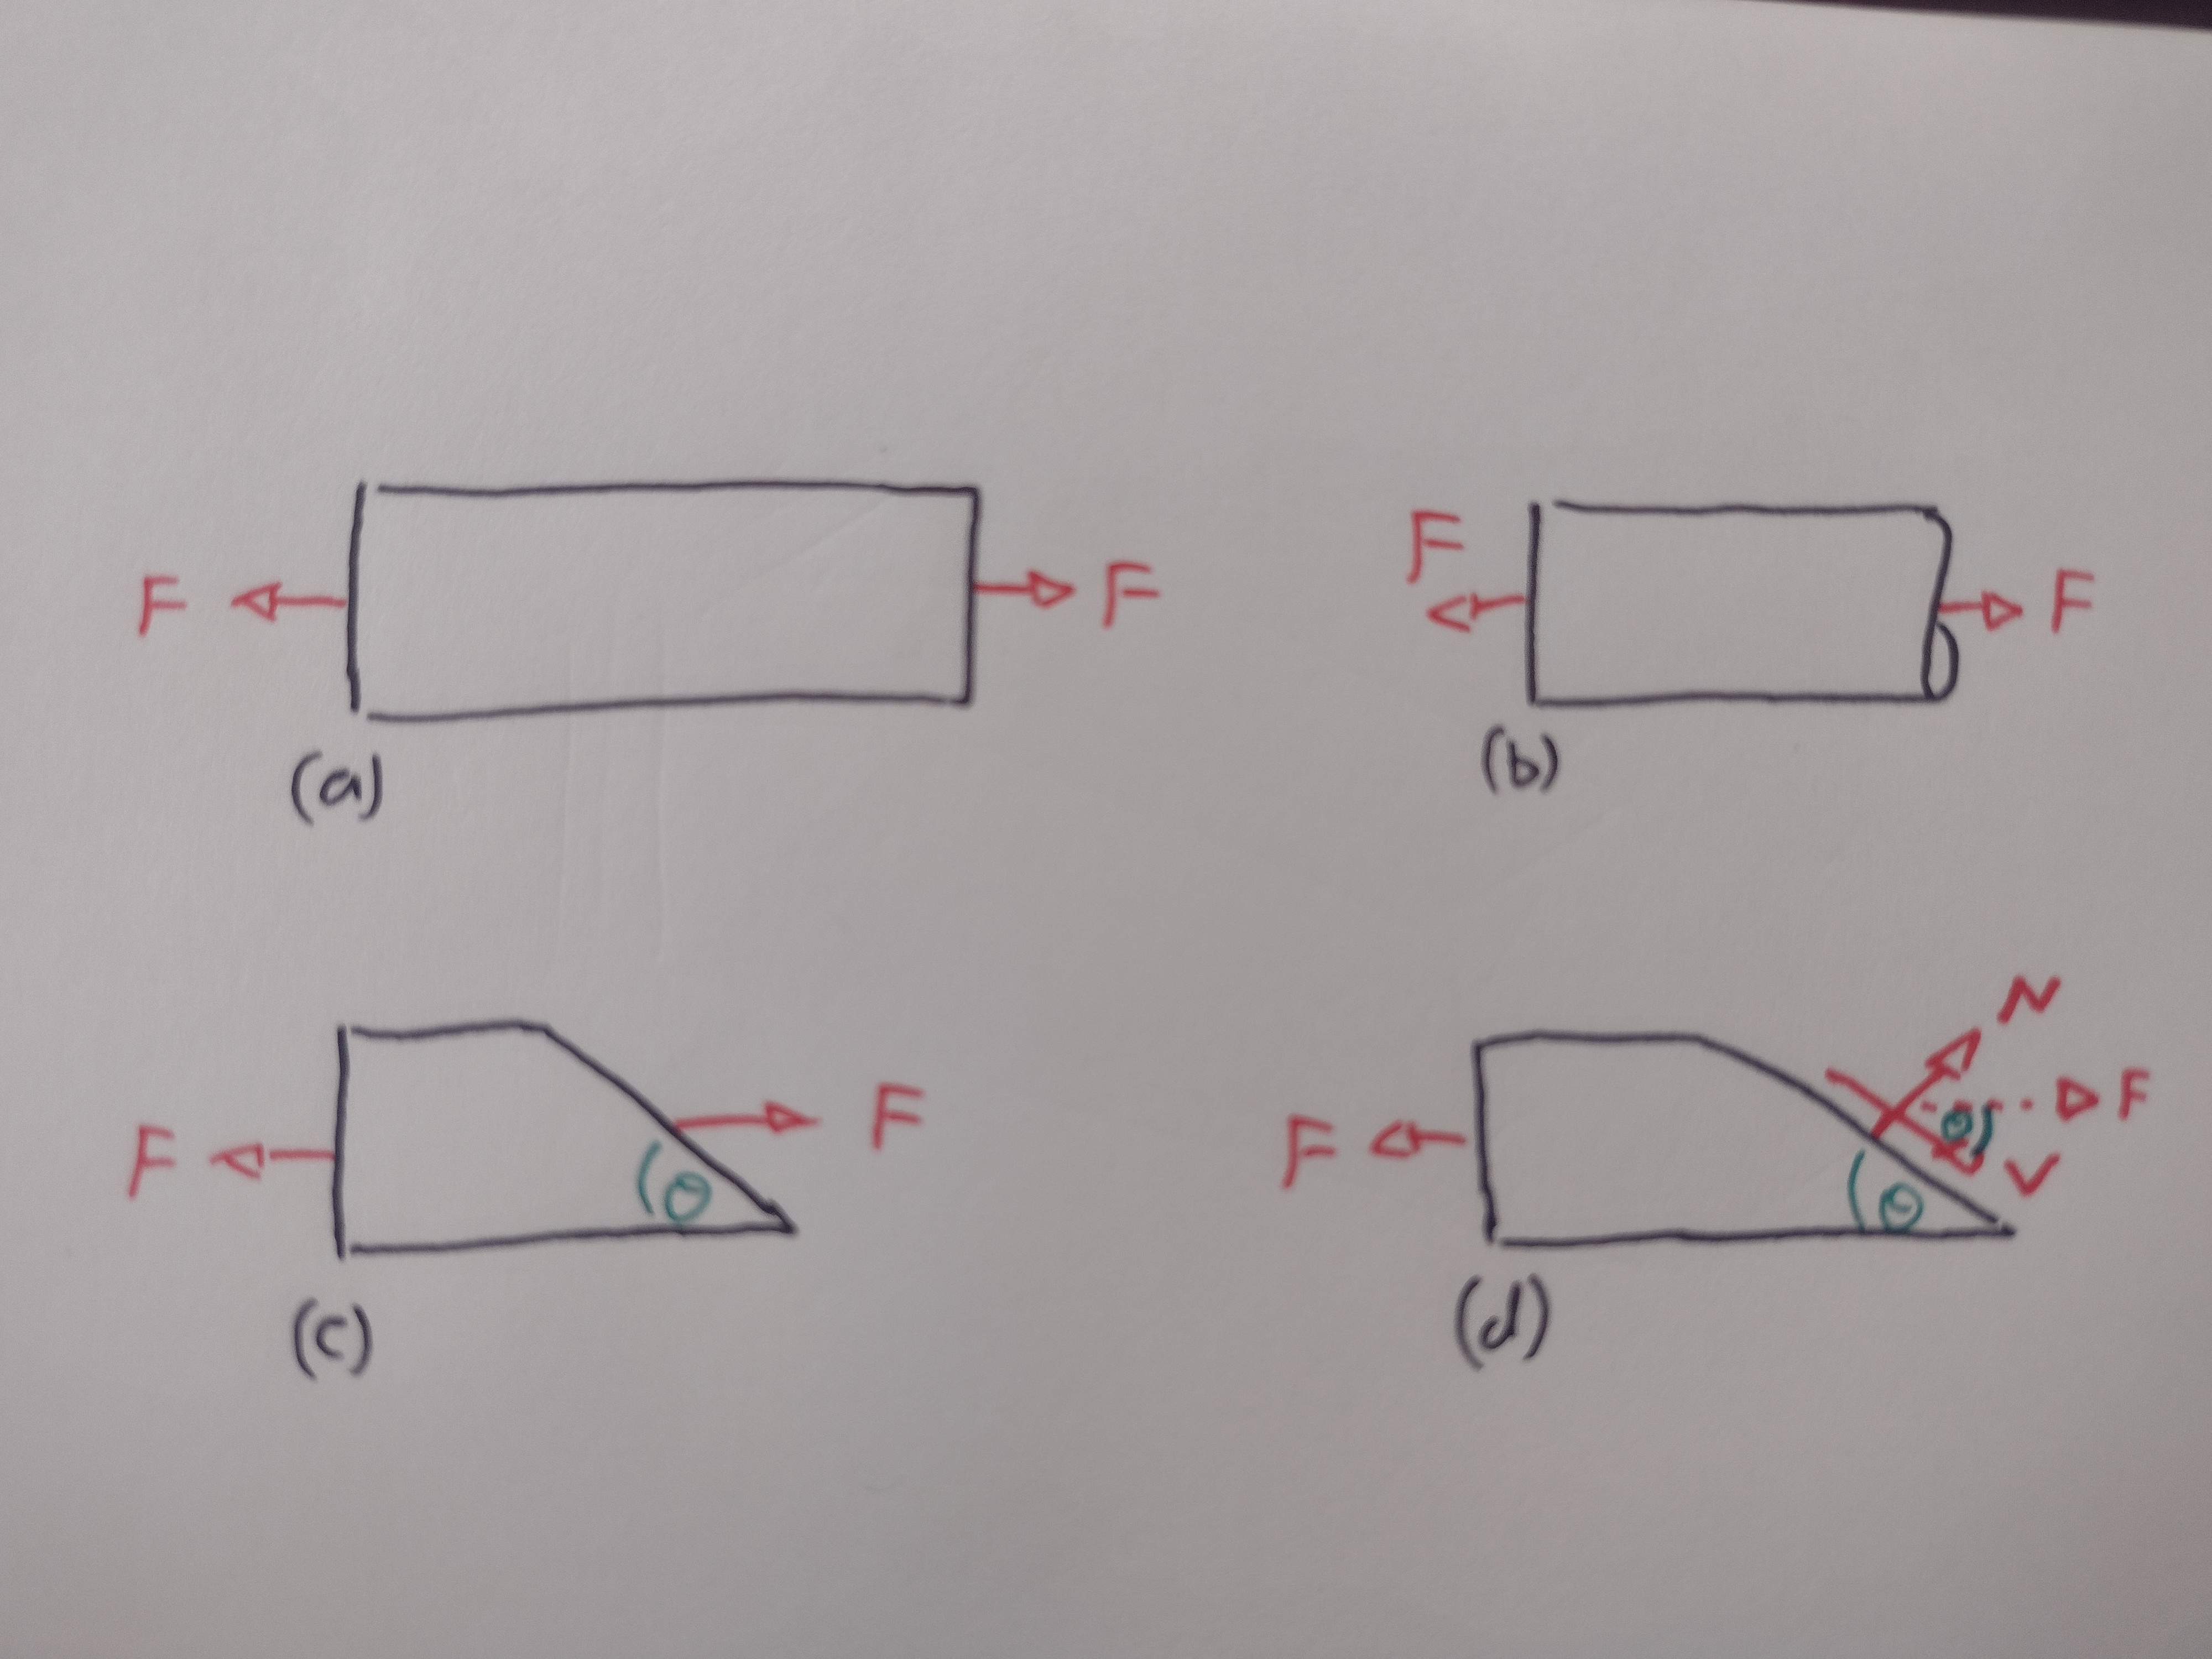 F F
(a)
F F
(b)
F F
θ
(c)
N
F F
θ
V
θ
(d)